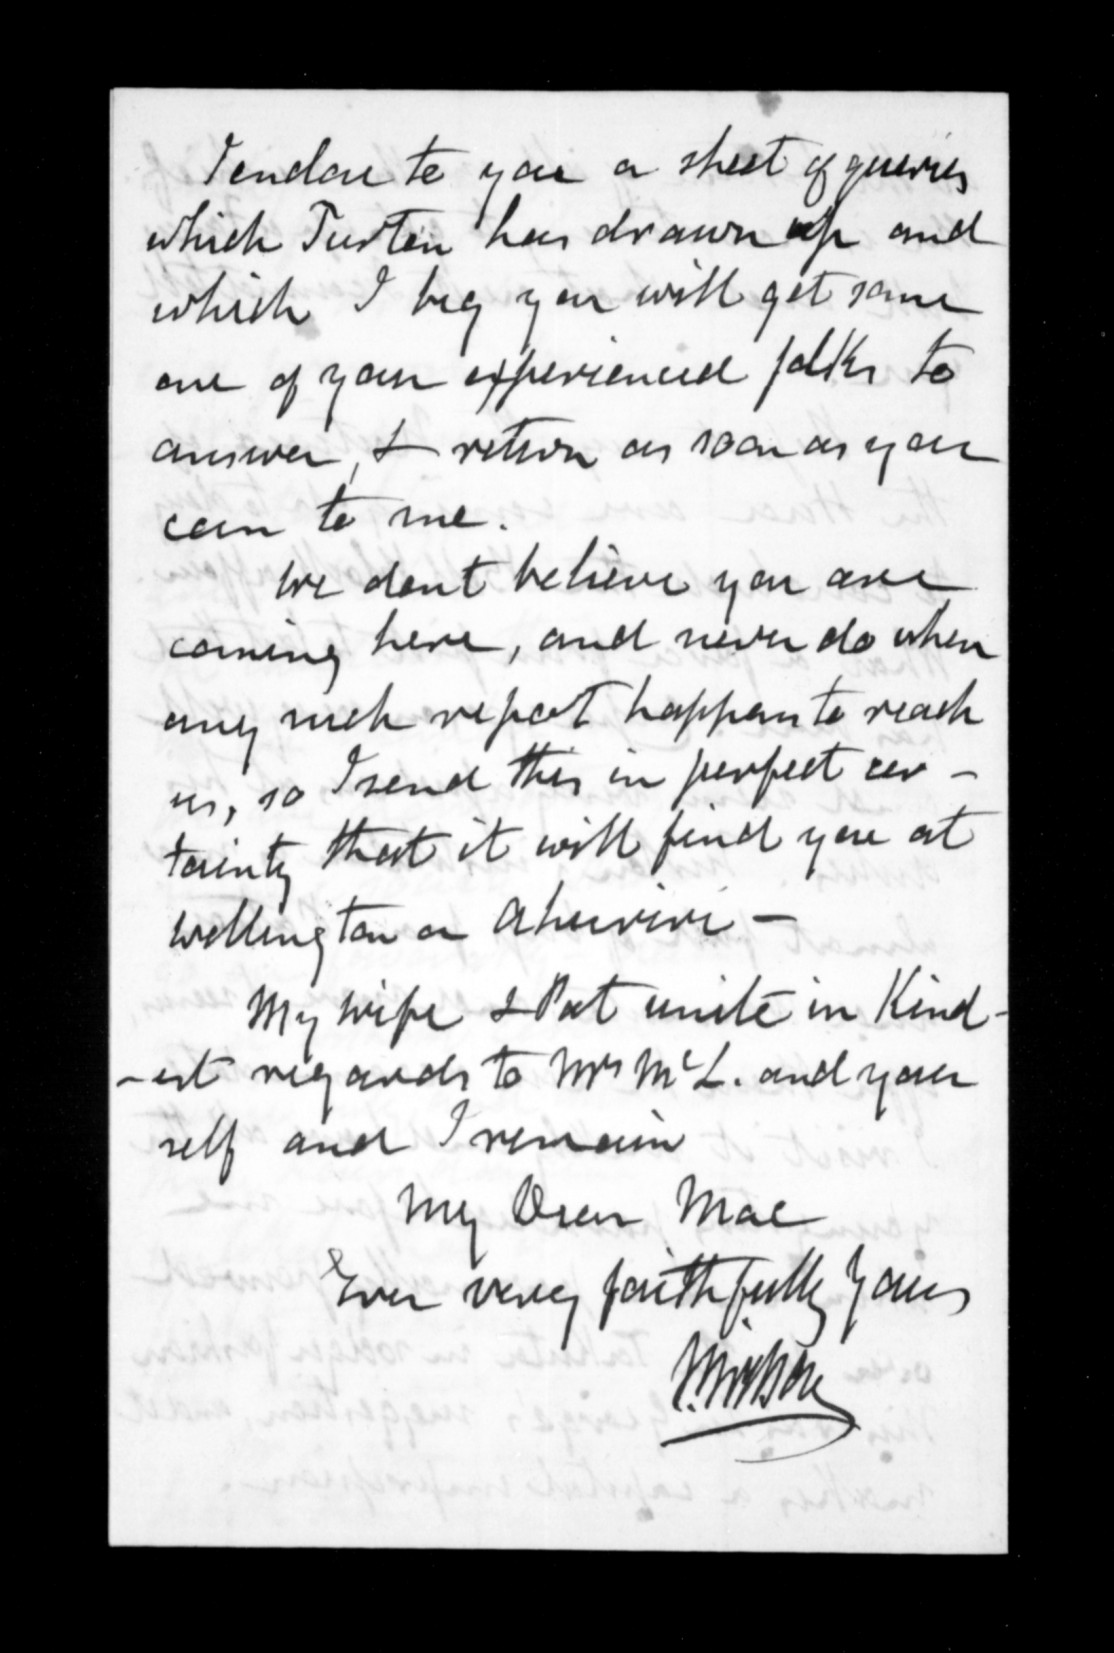 I enclose to you a sheet of queries
which Turton has drawn up and
which I beg you will get some
one of your experienced folks to
answer, & return as soon as you
can to me.
We dont believe you are
coming here, and never do when
any such report happens to reach
us, so I send this in perfect cer -
tainty that it will find you at
Wellington or Ahuriri -
My wife & Pat unite in Kind -
- est regards to Mrs McL. and your
self and I remain
My Dear Mac
Ever very faithfully Yours